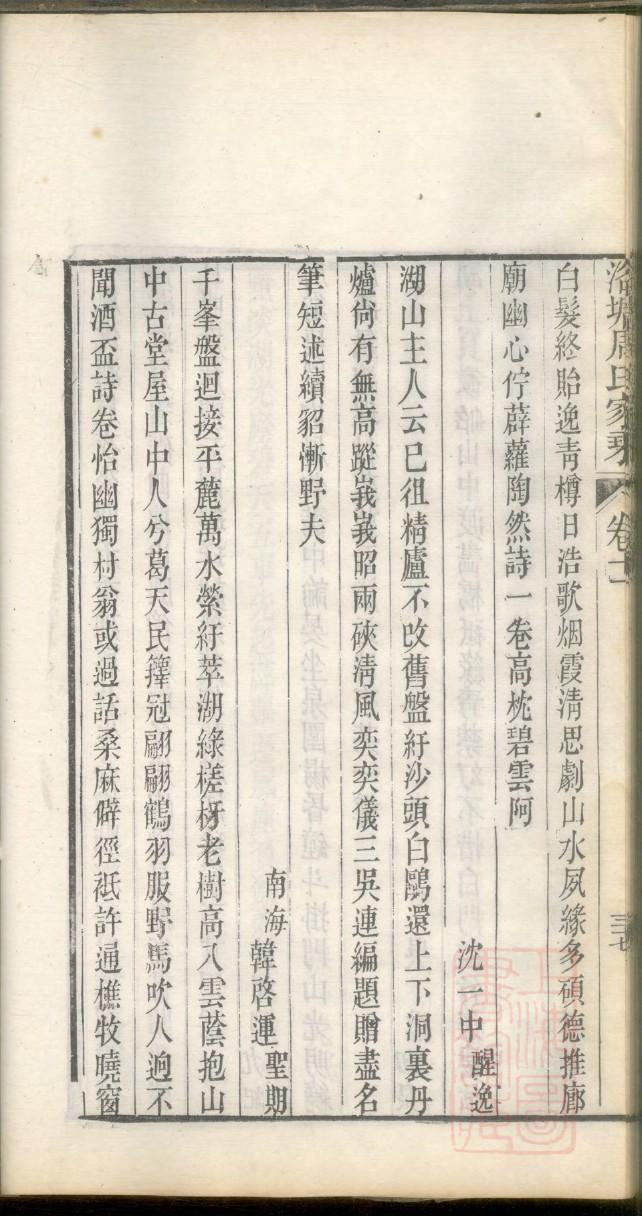 周氏家乘 卷十 三七
白髮終貽逸青樽日浩歌烟霞清思劇山水夙緣多碩德推廊
廟幽心佇薜蘿陶然詩一卷高枕碧雲阿
沈一中 醒逸
湖山主人云已徂精廬不改舊盤紆沙頭白鷗還上下洞裏丹
爐尙有無高蹤峩峩昭兩硤淸風奕奕儀三吳連編題贈盡名
筆短述續貂慚野夫
南海韓啓運 聖期
千峯盤迴接平麓萬水縈紆萃湖綠槎枒老樹高入雲蔭抱山
中古堂屋山中人兮葛天民籜冠翩翩鶴羽服野馬吹人逈不
聞酒盃詩卷怡幽獨村翁或過話桑麻僻徑祇許通樵牧曉窗